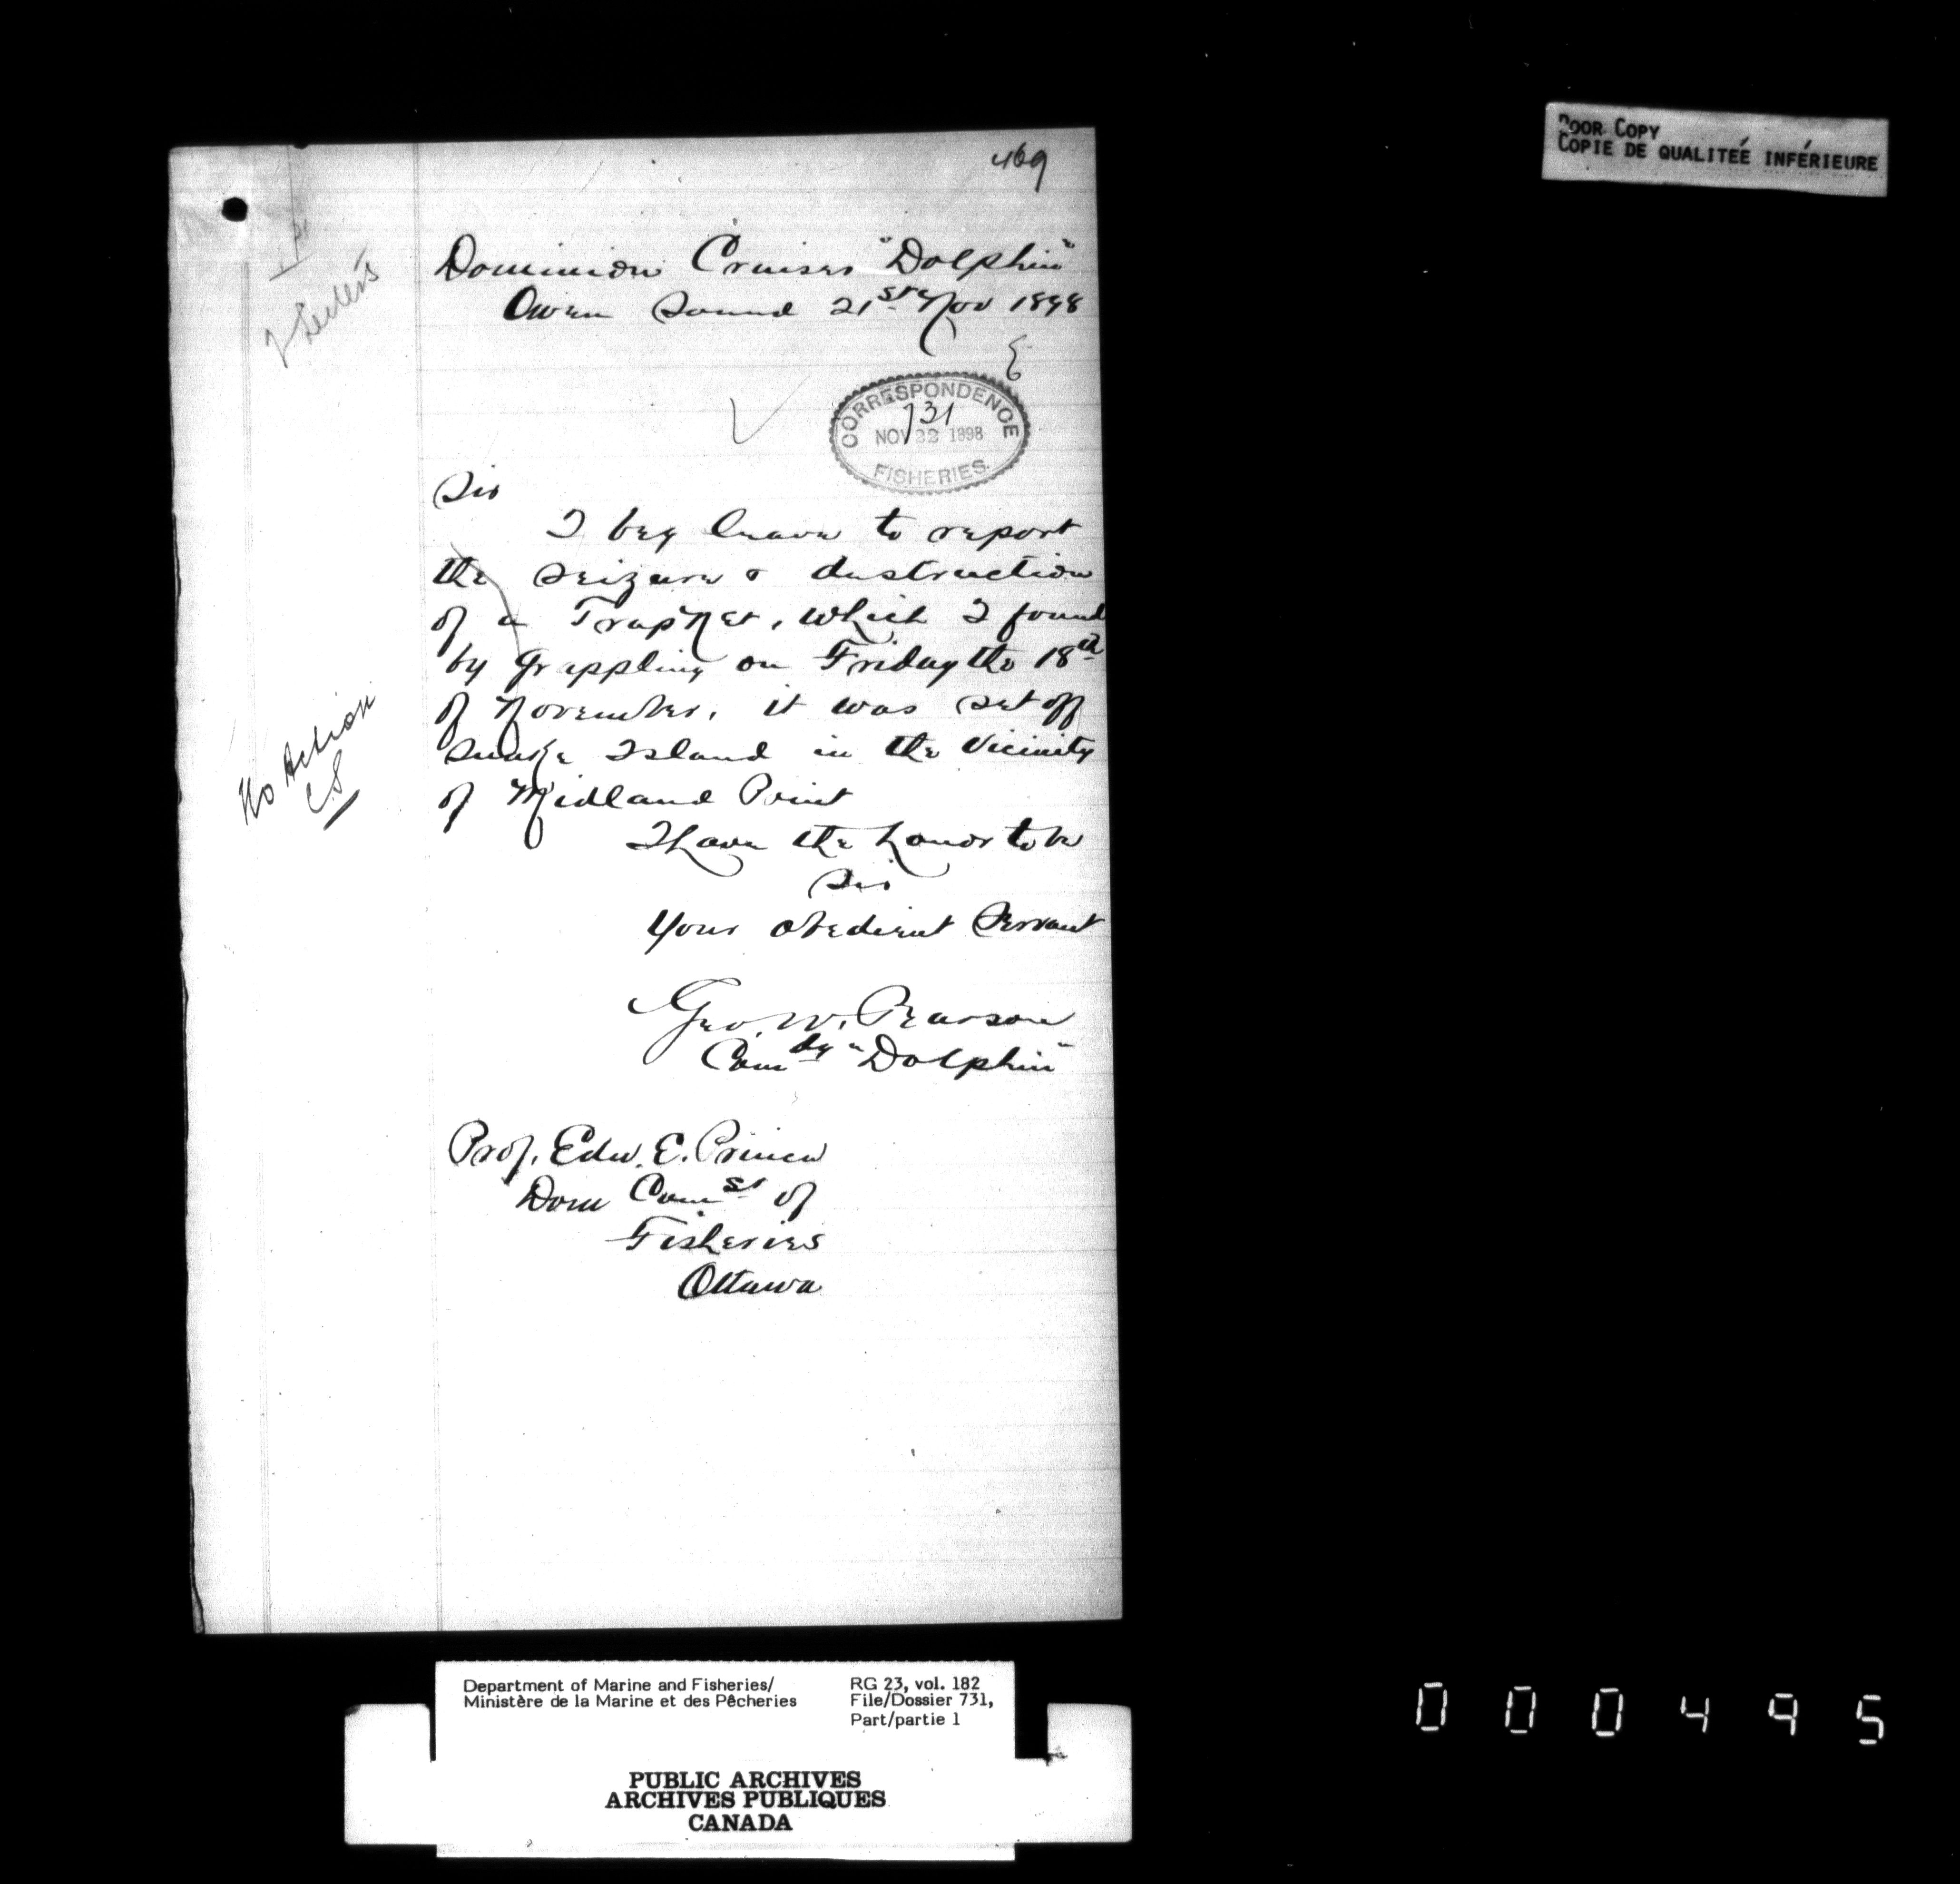 POOR COPY
COPIE DE QUALITEÉ INFÉRIEURE
469
2 Letters
Dominion Cruiser "Dolphin"
Owen Sound 21st Nov 1898
CORRESPONDENCE
731
NOV 22 1898
FISHERIES.
Sir
I beg leave to report
the seizure & destruction
of a Trap Net, which I found
by grappling on Friday the 18th
of November, it was set off
Snake Island in the vicinity
of Midland Point
No Action
CS
I have the honor to be
Sir
Your obedient Servant
Geo. W. Pearson
Comdg "Dolphin"
Prof. Edw. E. Prince
Dom Comsr of
Fisheries
Ottawa
Department of Marine and Fisheries/
Ministère de la Marine et des Pêcheries
RG 23, vol. 182
File/Dossier 731,
Part/partie 1
PUBLIC ARCHIVES
ARCHIVES PUBLIQUES
CANADA
000495